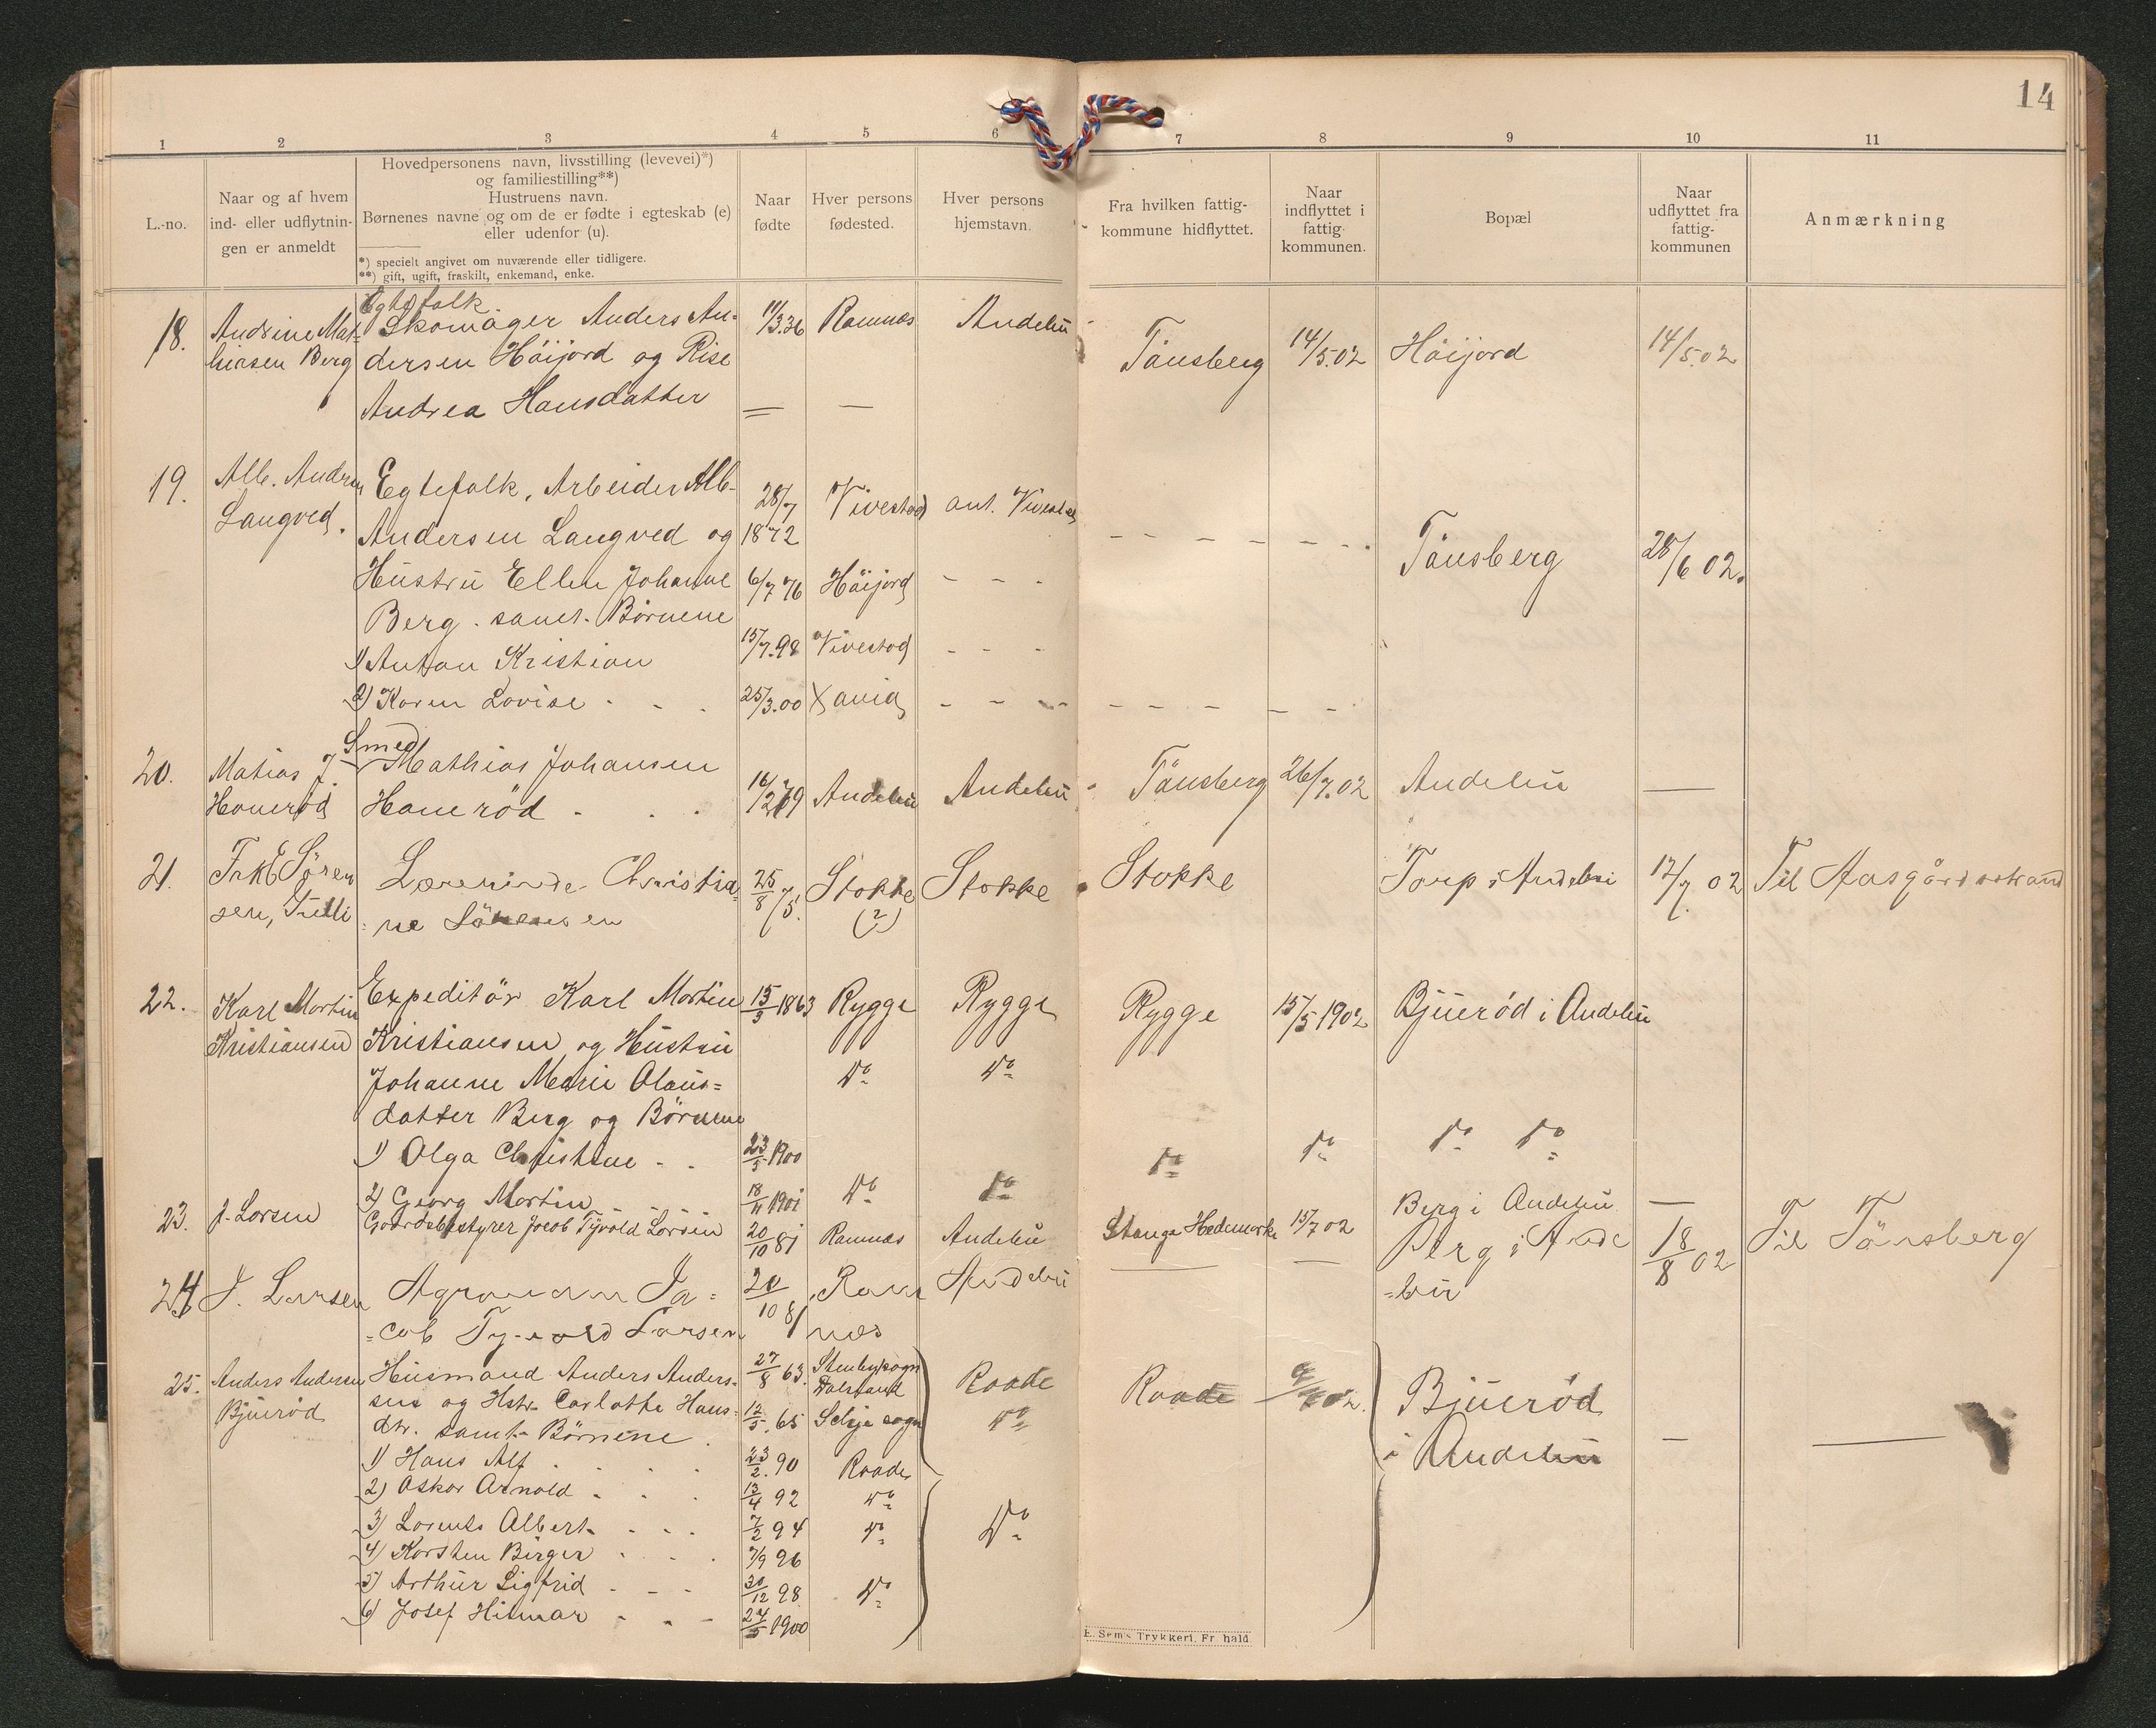 14
1 2 3 4 5 6 7 8 9 10 11
L.-no.
Naar og af hvem
ind- eller udflytnin-
gen er anmeldt
Hovedpersonens navn, livsstilling (levevei)*)
og familiestilling**)
Hustruens navn.
Børnenes navne og om de er fødte i egteskab (e)
eller udenfor (u).
*) specielt angivet om nuværende eller tidligere.
**) gift, ugift, fraskilt, enkemand, enke.
Naar
fødte
Hver persons
fødested.
Hver persons
hjemstavn.
Fra hvilken fattig-
kommune hidflyttet.
Naar
indflyttet i
fattig-
kommunen.
Bopæl
Naar
udflyttet fra
fattig-
kommunen
Anmærkning
Egtefolk
18. Andrine Mat- Skomager Anders An- 11/3.36 Ramnæs Andebu Tönsberg 14/5.02 Höijord 14/5.02
hiasen Berg dersen Höijord og Rise
Andrea Hansdatter = —
19. Alb. Andersen Egtefolk, Arbeider Alb. 28/7 Vivestad ant. Vivestad
Langved. Andersen Langved og 1872 - - - - - - Tönsberg 28/6 02.
Hustru Ellen Johanne 6/7 76 Höijord - - -
Berg. samt. Börnene
1) Anton Kristian 15/7.98 Vivestad - - -
2) Karen Lovise - - - 25/3.00 - - - - - - - - -
Smed
20. Matias J. Mathias Johansen 16/12 79 Andebu Andebu Tönsberg 26/7.02 Andebu —
Honerød Honerød - - -
21. Frk E Sören Lærerinde Christia= 25/8 75. Stokke Stokke Stokke Torp i Andebu 12/7 02 Til Aasgårdsstrand
sen, =ne Sörensen (?)
22. Karl Martin Expeditör Karl Martin 15/3 1863 Rygge Rygge Rygge 15/5 1902 Bjuerød i Andebu
Kristiansen Kristiansen og Hustru
Johanne Marie Olaus= do do
datter Berg og Börnene
1) Olga Christine - - 23/5 1900 do do do do
2) Georg Martin 18/11 1901 do do
23. J. Larsen Gaardsbestyrer Jacob Tjvald Larsen 20/10 81 Ramnæs Andebu Stange Hedemarke 15/7 02 Berg i Andebu —
24 J. Larsen Agronom Ja= 20/10 81 Ram Andebu — — Berg i Ande 18/8 02 Til Tönsberg
=cob Larsen næs =bu
25. Anders Andersen Husmand Anders Anders- 27/8 63. Stenbysogn Raade Raade Bjuerød
Bjuerød sen og Hstr. Carlothe Hans= Dalsland
dtr. samt Börnene. 12/5. 65 sogn do i Andebu — —
1) Hans Alf - - - 23/2. 90 Raade
2) Oskar Arnold - - - 13/4 92 do
3) Lorents Albert - - - 7/2 94 do do
4) Karsten Birger - - - 7/9 96
5) Arthur Sigfrid - - - 30/12 98 do
6) Josef Hilmar - - - 24/5 1900
E. Sem's Trykkeri, Fr.hald